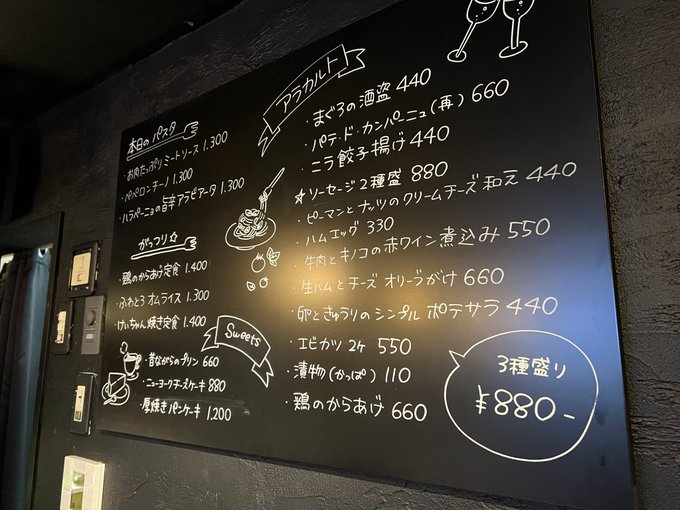 本日のパスタ
・お肉たっぷりミートソース 1.300
・ペペロンチーノ 1.300
・ハラペーニョの旨辛アラビアータ 1.300
がっつり☆
・鶏のからあげ定食 1.400
・ふわとろオムライス 1.300
・けいちゃん焼き定食 1.400
Sweets
・昔ながらのプリン 660
・ニューヨークチーズケーキ 880
・厚焼きパンケーキ 1.200
アラカルト
・まぐろの酒盗 440
・パテ・ド・カンパーニュ(再) 660
・ニラ餃子揚げ 440
☆ソーセージ2種盛 880
・ピーマンとナッツのクリームチーズ和え 440
・ハムエッグ 330
・牛肉とキノコの赤ワイン煮込み 550
・生ハムとチーズ オリーブがけ 660
・卵ときゅうりのシンプル ポテサラ 440
・エビカツ 2ケ 550
・漬物(かっぱ) 110
・鶏のからあげ 660
3種盛り
¥880-